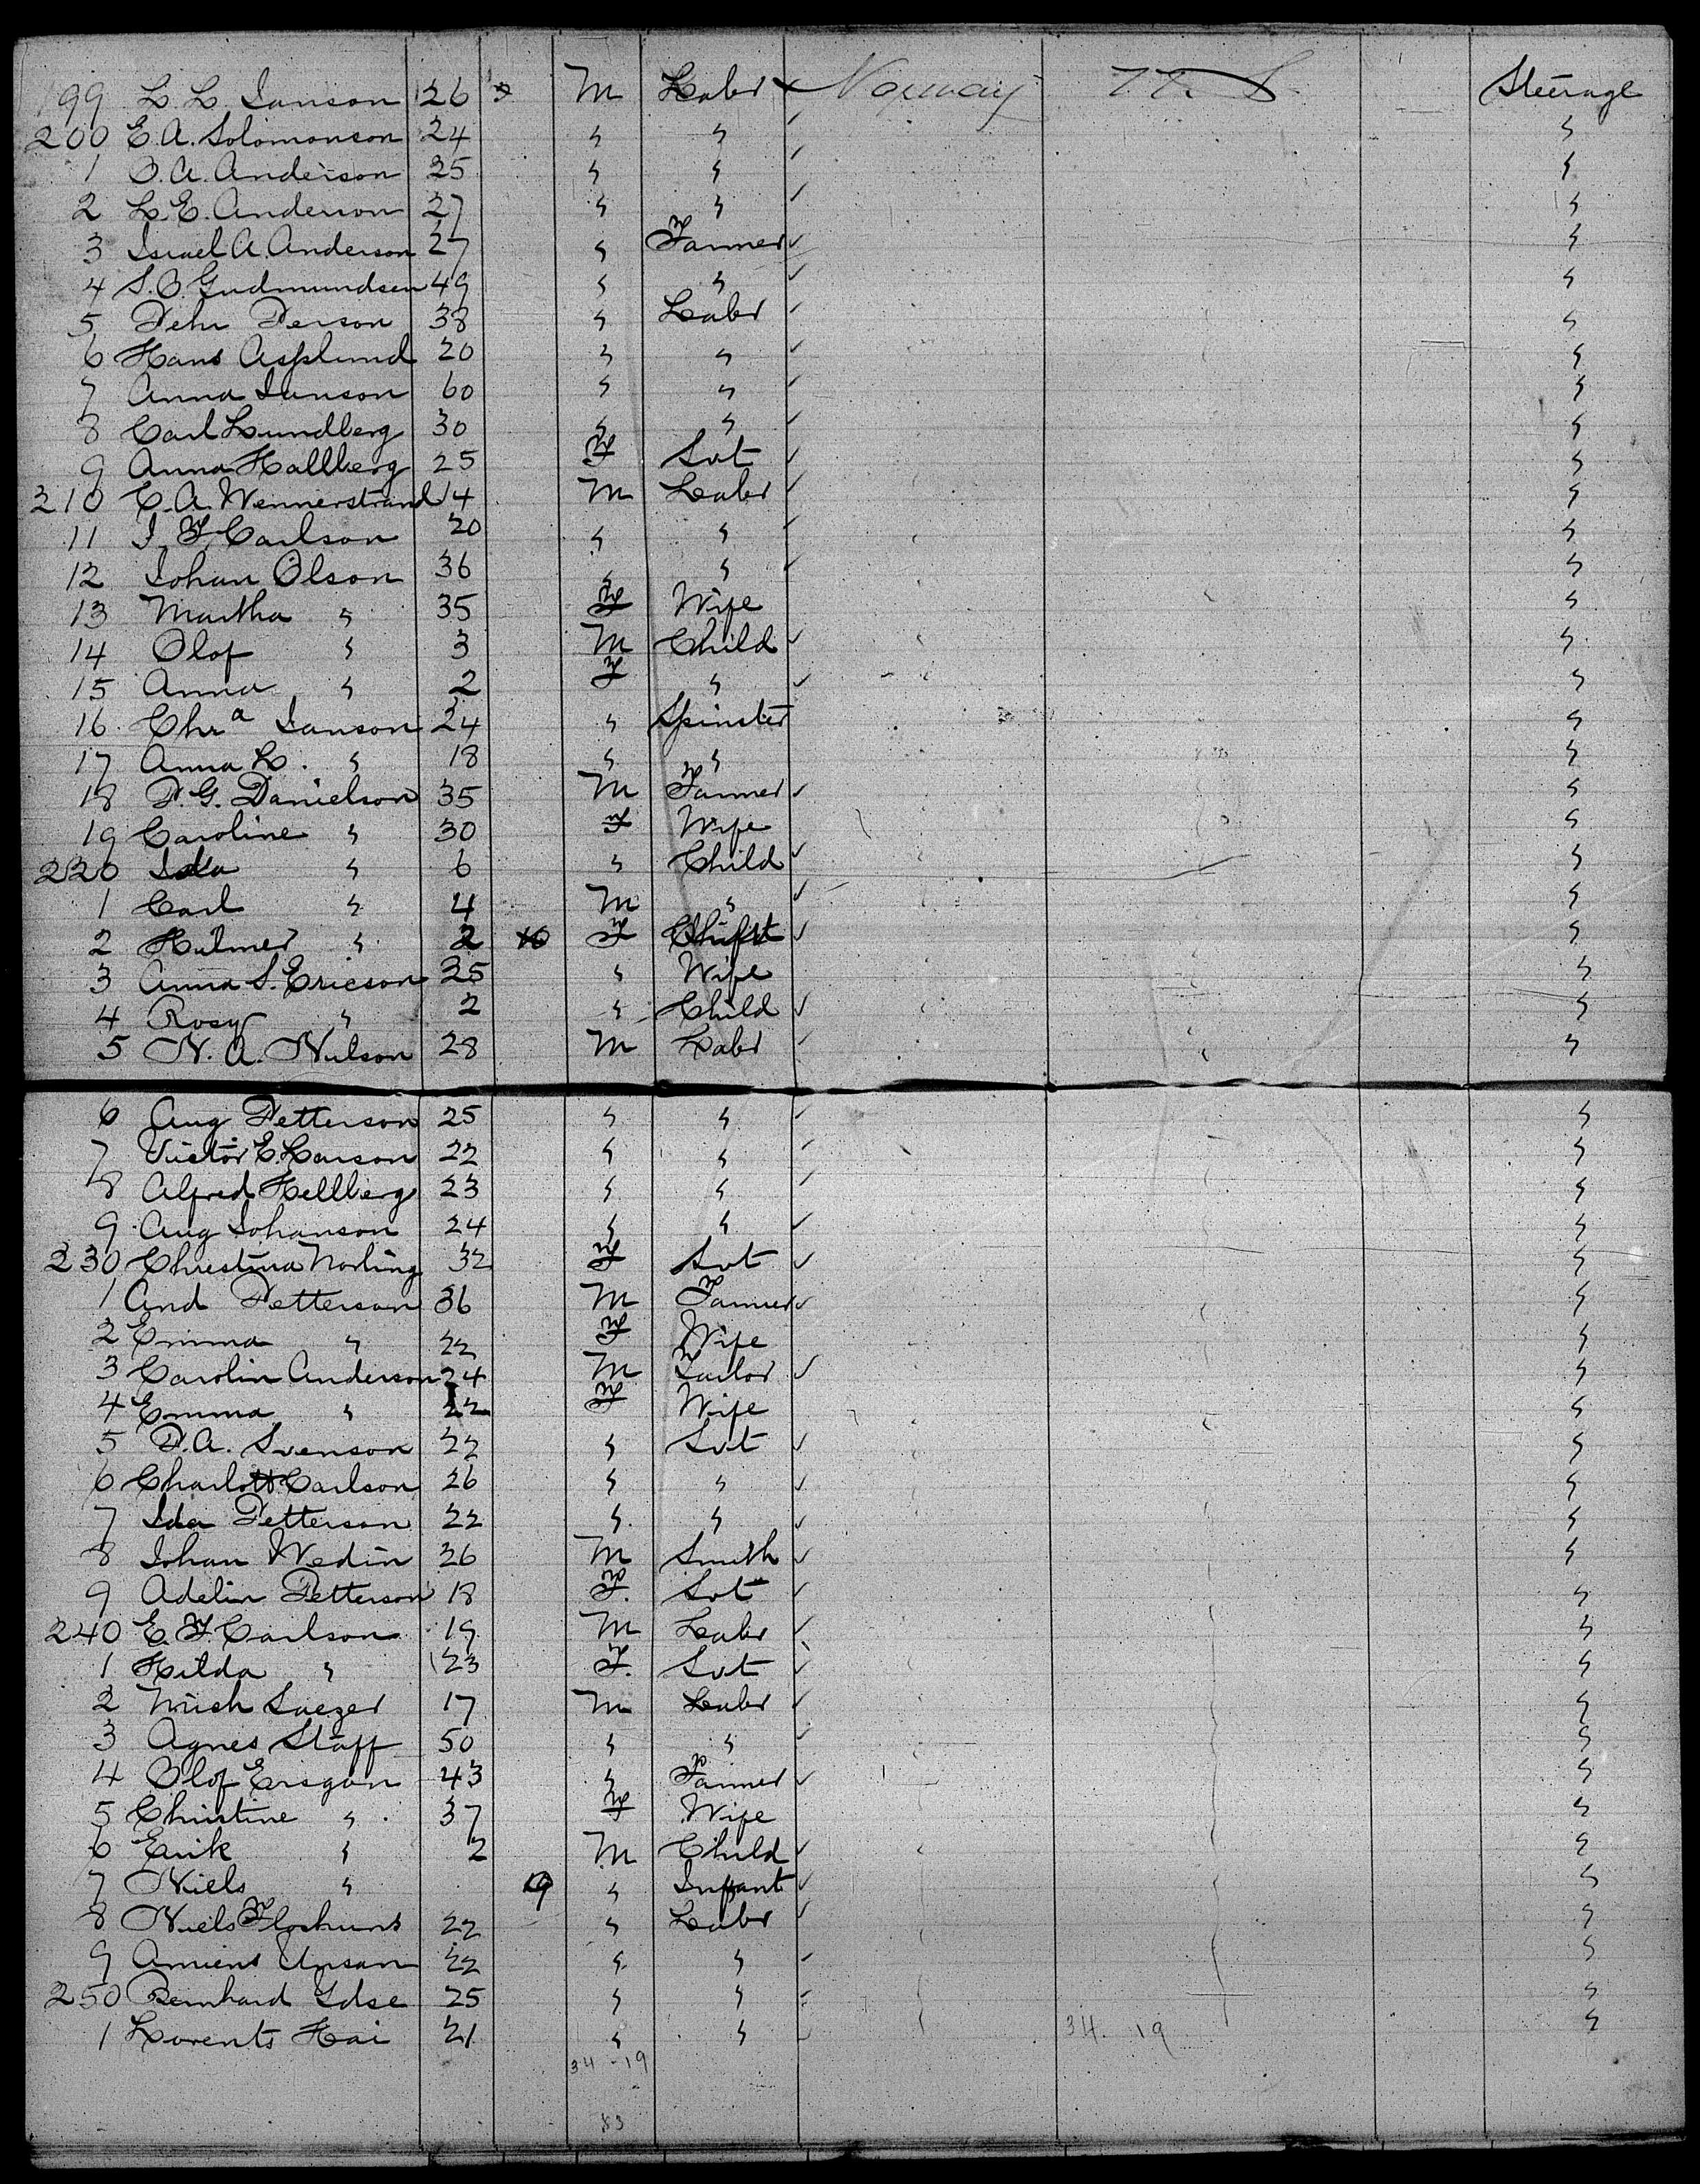 199 L. L. Janson 26 M Labr Norway U.S. Steerage
200 E. A. Solomonson 24 " " "
1 O. A. Anderson 25 " " "
2 L. E. Anderson 27 " " "
3 Israel A. Anderson 27 " Farmer "
4 S. O. Gudmundsen 49 " " "
5 Pehr Person 38 " Labr "
6 Hans Asplund 20 " " "
7 Anna Janson 60 " " "
8 Carl Lundberg 30 " " "
9 Anna Hallberg 25 F Svt "
210 C. A. Wennerstrand 14 M Labr "
11 J. F. Carlson 20 " " "
12 Johan Olson 36 " " "
13 Martha " 35 F Wife "
14 Olof " 3 M Child "
15 Anna " 2 F " "
16 Chra Janson 24 " Spinster "
17 Anna L. " 18 " " "
18 P. G. Danielson 35 M Farmer "
19 Caroline " 30 F Wife "
220 Ida " 6 " Child "
1 Carl " 4 M " "
2 Hulmer " 2 F "
3 Anna S. Ericson 25 " Wife "
4 Rosy " 2 " Child "
5 N. A. Nilson 28 M Labr "
6 Aug Petterson 25 " " "
7 Victor E. Larson 22 " " "
8 Alfred Hellberg 23 " " "
9 Aug Johanson 24 " " "
230 Christina Norling 32 F Svt "
1 And Petterson 36 M Farmer "
2 Emma " 22 F Wife "
3 Carolin Anderson 24 M Tailor "
4 Emma " 22 F Wife "
5 P. A. Svenson 22 " Svt "
6 Charlott Carlson 26 " " "
7 Ida Petterson 22 " " "
8 Johan Wedin 26 M Smith "
9 Adelin Petterson 18 F. Svt "
240 E. F. Carlson 19 M Labr "
1 Hilda " 23 F. Svt "
2 Mich Saezer 17 M Labr "
3 Agnes Staff 50 " " "
4 Olof Ersgon 43 " Farmer "
5 Christine " 37 F Wife "
6 Erik " 2 M Child "
7 Niels " 9 " Infant "
8 Niels 22 " Labr "
9 Unsan 22 " " "
250 Bernhard Idse 25 " " "
1 Lorents Hai 21 " " "
34. 19
34 - 19
83